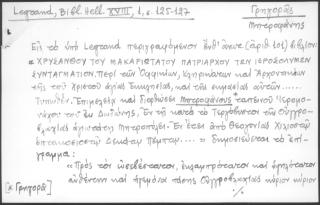 Legrand, Bibl. Hell. XVIII, 1, σ. 125-127
Γρηγορᾶς
Μητροφάνης
Εἰς τὸ ὑπὸ Legrand περιγραφόμενον ἐνθ' ἀνωτ. (ἀριθ. 102) βιβλίον
« ΧΡΥΣΑΝΘΟΥ ΤΟΥ ΜΑΚΑΡΙΩΤΑΤΟΥ ΠΑΤΡΙΑΡΧΟΥ ΤΩΝ ΙΕΡΟΣΟΛΥΜΩΝ
ΣΥΝΤΑΓΜΑΤΙΟΝ. Περὶ τῶν Ὀφφικίων, κληρικάτων καὶ Ἀρχοντικίων
τῆς τοῦ Χριστοῦ ἁγίας Ἐκκλησίας, καὶ τῆς σημασίας αὐτῶν.....
Τυπωθὲν. Ἐπιμελείᾳ καὶ διορθώσει Μητροφάνους ταπεινοῦ Ἱερομο-
νάχου τοῦ ἐκ Δωδώνης, Ἐν τῇ κατὰ τὸ Τεργόβυστον τῆς Οὐγγρο-
βλαχίας ἁγιωτάτῃ Μητροπόλει. Ἐν ἔτει ἀπὸ Θεογονίας Χιλιοστῷ
ἑπτακοσιοστῷ Δεκάτῳ Πέμπτῳ.... » δημοσιεύεται τὸ ἐπί-
γραμμα:
« Πρὸς τὸν εὐσεβέστατον, ἐκλαμπρότατον καὶ ὑψηλότατον
αὐθέντην καὶ ἡγεμόνα πάσης Οὐγγροβλαχίας κύριον κύριον
[* Γρηγορᾶ]
·/.